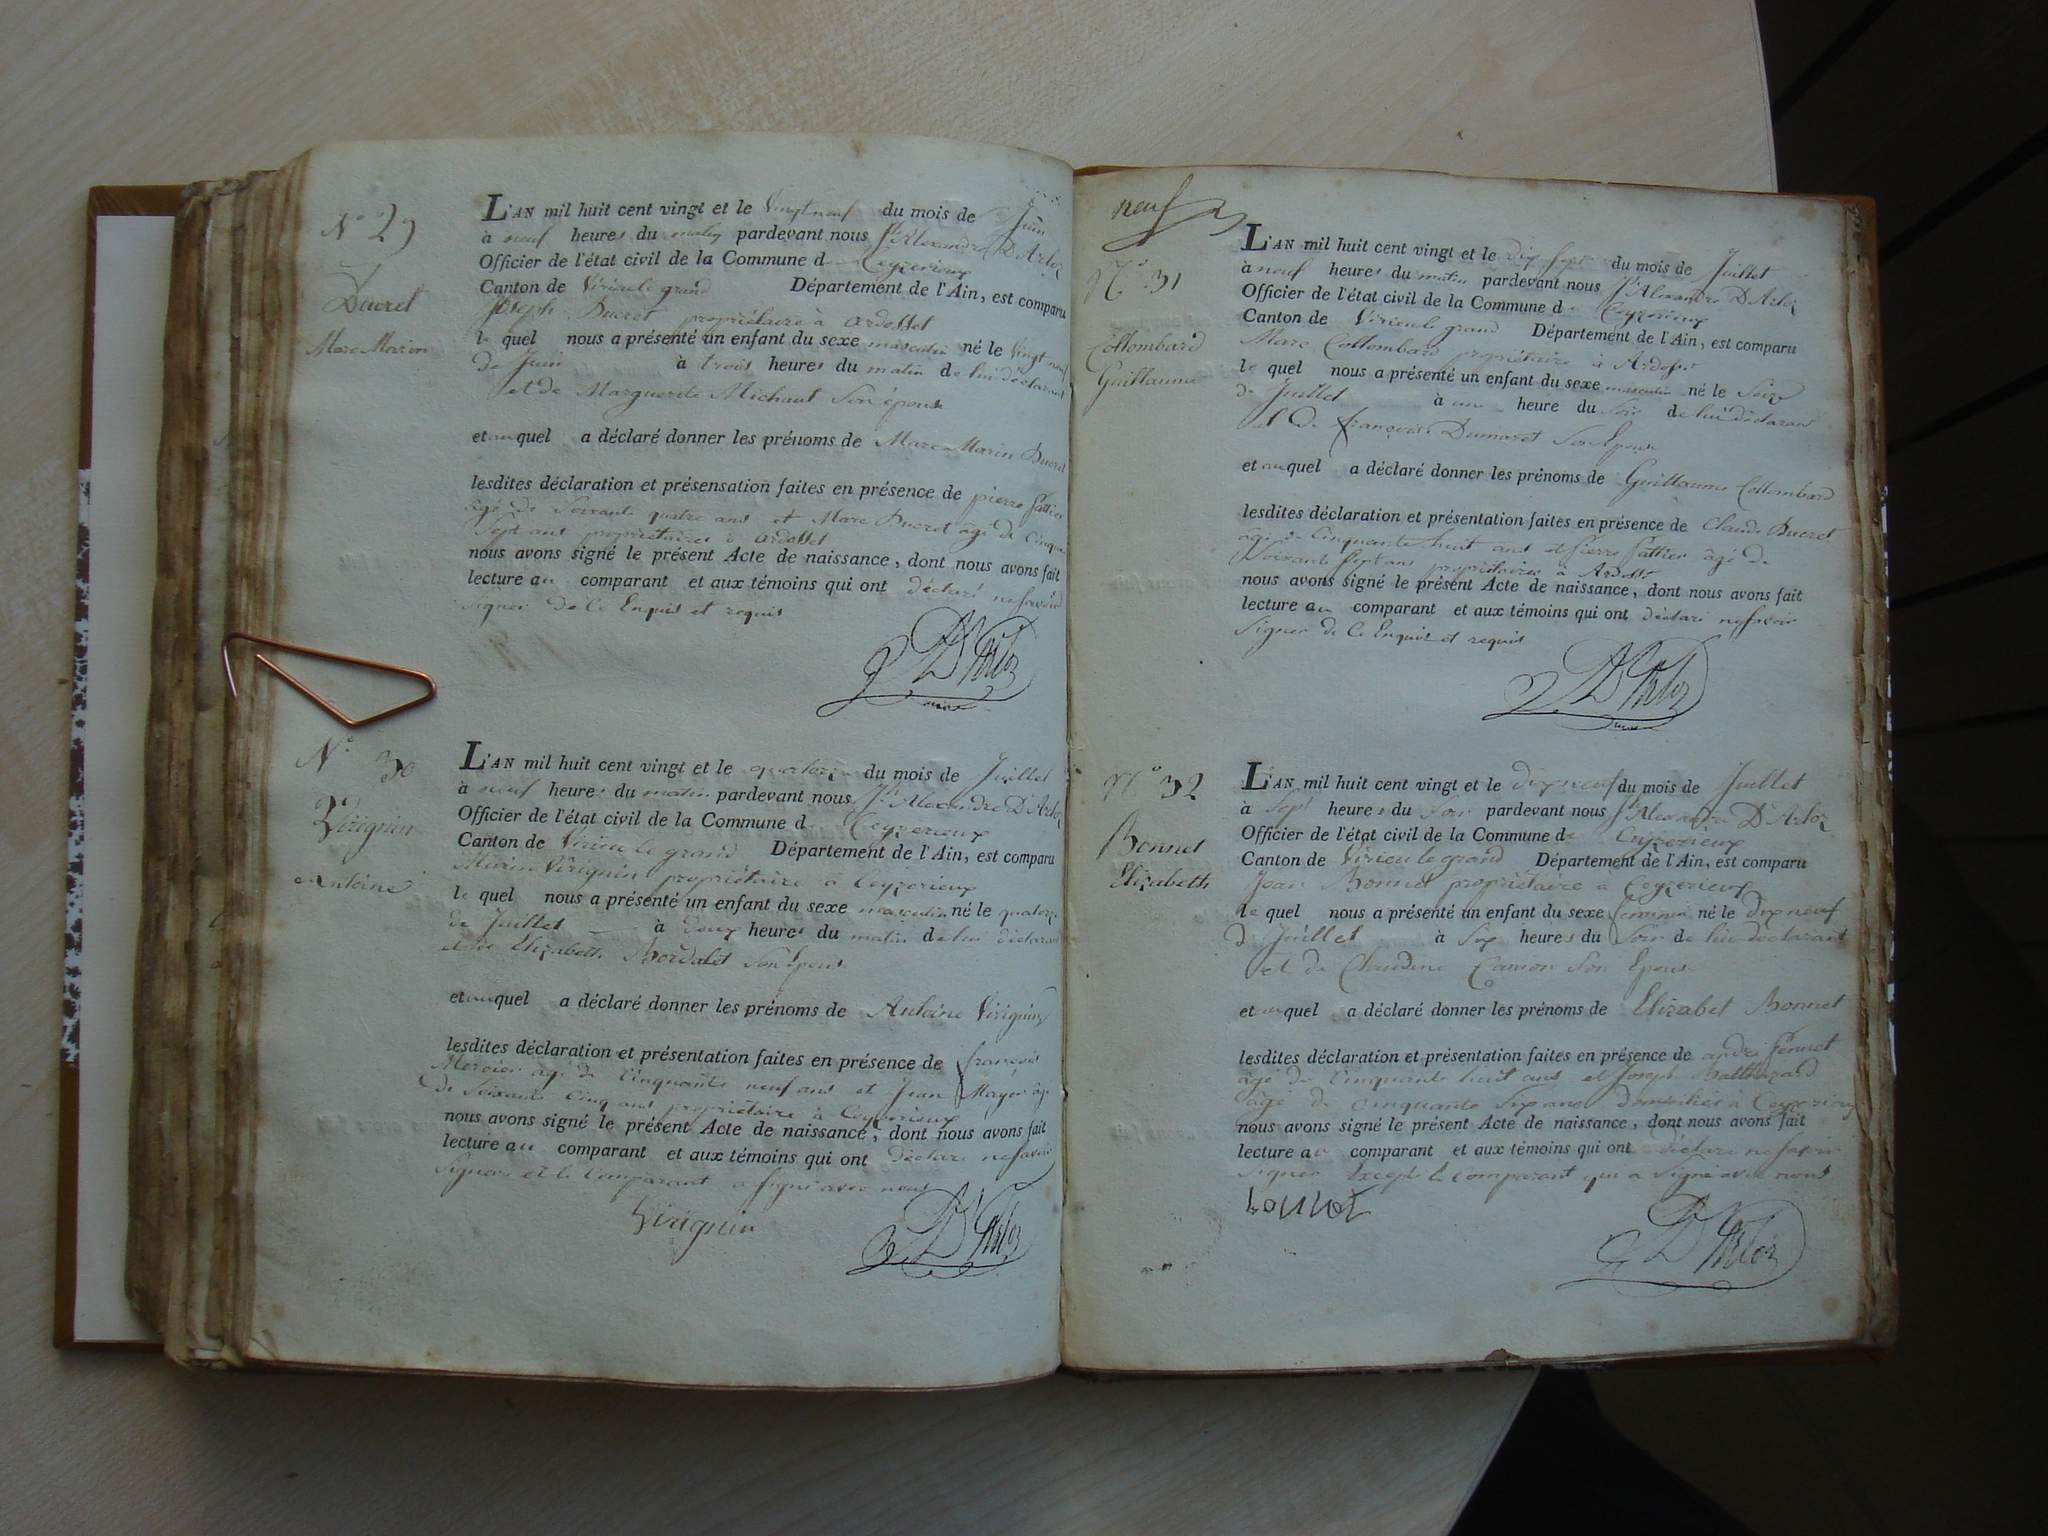 N° 29
Ducret
Marc Marion
L'AN mil huit cent vingt et le Vingt neuf du mois de Juin
à neuf heures du matin pardevant nous Jh Alexandre D'Arloz
Officier de l'état civil de la Commune de Ceyzerieux
Canton de Virieu le grand Département de l'Ain, est comparu
Joseph Ducret propriétaire à Ardosset
le quel nous a présenté un enfant du sexe masculin né le Vingt neuf
de Juin à trois heures du matin de lui déclarant
et de Marguerite Michaut Son épouse
et auquel a déclaré donner les prénoms de Marc Marin Ducret
lesdites déclaration et présensation faites en présence de pierre Fattier
âgé de Soixante quatre ans et Marc Ducret âgé de Cinquante
Sept ans propriétaires à Ardosset
nous avons signé le présent Acte de naissance, dont nous avons fait
lecture au comparant et aux témoins qui ont déclaré ne savoir
Signer De Ce Enquis et requis
D'Arloz
maire
N° 30
Virignin
Antoine
L'AN mil huit cent vingt et le quatorze du mois de Juillet
à neuf heures du matin pardevant nous Jh Alexandre D'Arloz
Officier de l'état civil de la Commune de Ceyzerieux
Canton de Virieu le grand Département de l'Ain, est comparu
Marin Virignin propriétaire à Ceyzerieux
le quel nous a présenté un enfant du sexe masculin né le quatorze
de Juillet à deux heures du matin de lui déclarant
et de Elizabeth Bordalet Son épouse
et auquel a déclaré donner les prénoms de Antoine Virignin
lesdites déclaration et présentation faites en présence de françois
Mercier âgé de Cinquante neuf ans et Jean Mayer âgé
de Soixante Cinq ans propriétaire à Ceyzerieux
nous avons signé le présent Acte de naissance, dont nous avons fait
lecture au comparant et aux témoins qui ont déclaré ne savoir
Signer et le Comparant a Signé avec nous
Virignin
D'Arloz
neuf
N° 31
Collombard
Guillaume
L'AN mil huit cent vingt et le dix Sept du mois de Juillet
à neuf heures du matin pardevant nous Jh Alexandre D'Arloz
Officier de l'état civil de la Commune de Ceyzerieux
Canton de Virieu le grand Département de l'Ain, est comparu
Marc Collombard propriétaire à Ardosset
le quel nous a présenté un enfant du sexe masculin né le Seize
de Juillet à une heure du Soir de lui déclarant
et De françoise Dumaret Son Epouse
et auquel a déclaré donner les prénoms de Guillaume Collombard
lesdites déclaration et présentation faites en présence de Claude Ducret
âgé de Cinquante huit ans et Pierre Fattier âgé de
Soixante Sept ans propriétaires à Ardosset
nous avons signé le présent Acte de naissance, dont nous avons fait
lecture au comparant et aux témoins qui ont déclaré ne savoir
Signer de Ce Enquis et requis
D'Arloz
maire
N° 32
Bonnet
Elizabeth
L'AN mil huit cent vingt et le Dix neuf du mois de Juillet
à Sept heures du Soir pardevant nous Jh Alexandre D'Arloz
Officier de l'état civil de la Commune de Ceyzerieux
Canton de Virieu le grand Département de l'Ain, est comparu
Jean Bonnet propriétaire à Ceyzerieux
le quel nous a présenté un enfant du sexe feminin né le Dix neuf
de Juillet à Six heures du Soir de lui déclarant
et de Claudine Canion Son Epouse
et auquel a déclaré donner les prénoms de Elizabet Bonnet
lesdites déclaration et présentation faites en présence de andré Pennet
âgé de Cinquante huit ans et Joseph Balthazard
âgé de Cinquante Six ans Domiciliés à Ceyzerieux
nous avons signé le présent Acte de naissance, dont nous avons fait
lecture au comparant et aux témoins qui ont déclaré ne savoir
Signer Excepté le Comparant qui a Signé avec nous
D'Arloz